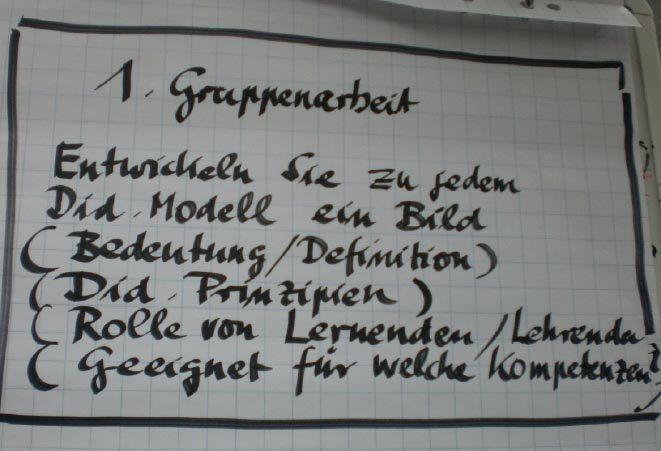 1. Gruppenarbeit
Entwickeln Sie zu jedem
Did. Modell ein Bild
(Bedeutung/Definition)
(Did. Prinzipien)
(Rolle von Lernenden/Lehrenden
(Geeignet für welche Kompetenzen?)